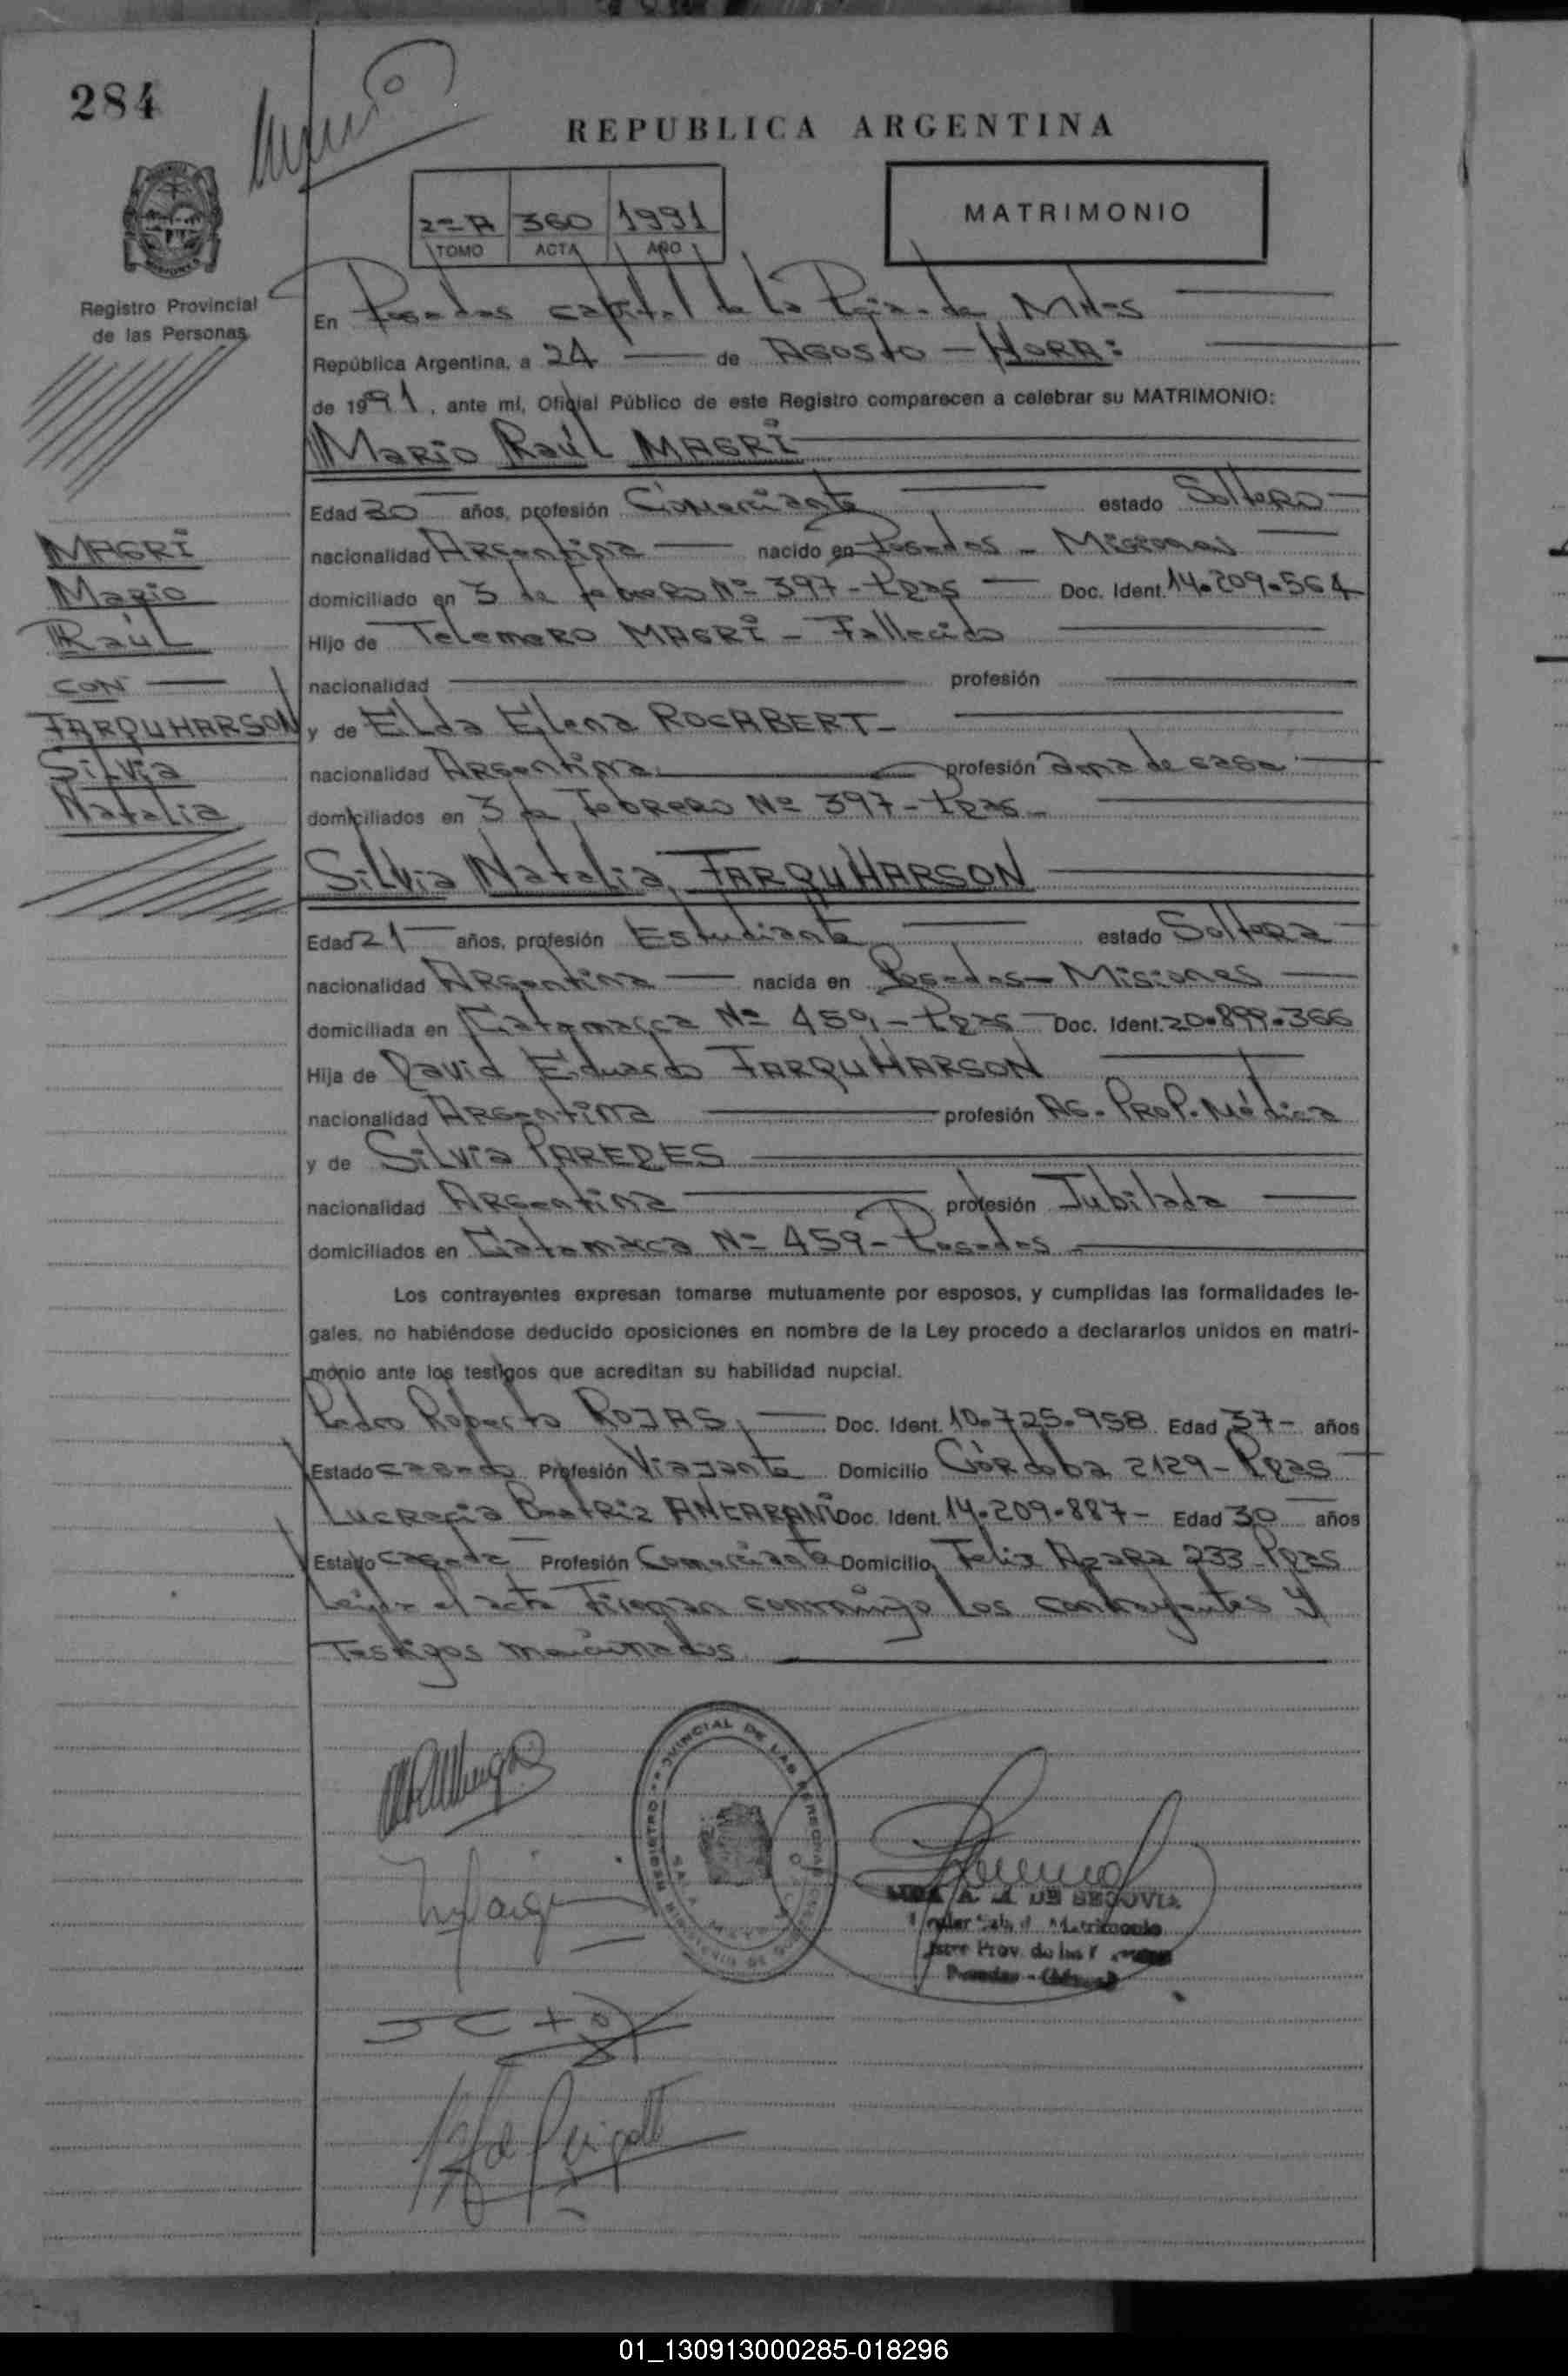 284
REPUBLICA ARGENTINA
2º A 360 1991
TOMO ACTA AÑO
MATRIMONIO
Registro Provincial
de las Personas
En Posadas capital de la Pcia. de Mnes
República Argentina, a 24 de Agosto - HORA:
de 1991, ante mí, Oficial Público de este Registro comparecen a celebrar su MATRIMONIO:
Mario Raúl MAGRI
Edad 30 años, profesión Comerciante estado Soltero
nacionalidad Argentina nacido en Posadas - Misiones
domiciliado en 3 de febrero Nº 397 - Pdas Doc. Ident. 14.209.564
Hijo de Telemero MAGRI - Fallecido
nacionalidad profesión
y de Elda Elena ROCABERT -
nacionalidad Argentina profesión ama de casa
domiciliados en 3 de Febrero Nº 397 - Pdas -
MAGRI
Mario
Raúl
CON
FARQUHARSON
Silvia
Natalia
Silvia Natalia FARQUHARSON
Edad 21 años, profesión Estudiante estado Soltera
nacionalidad Argentina nacida en Posadas - Misiones
domiciliada en Catamarca Nº 459 - Pdas Doc. Ident. 20.899.366
Hija de David Eduardo FARQUHARSON
nacionalidad Argentina profesión Ag. Prop. Médica
y de Silvia PAREDES
nacionalidad Argentina profesión Jubilada
domiciliados en Catamarca Nº 459 - Posadas -
Los contrayentes expresan tomarse mutuamente por esposos, y cumplidas las formalidades le-
gales, no habiéndose deducido oposiciones en nombre de la Ley procedo a declararlos unidos en matri-
monio ante los testigos que acreditan su habilidad nupcial.
Pedro Roberto ROJAS, Doc. Ident. 10.725.958 Edad 37 - años
Estado casado Profesión Viajante Domicilio Córdoba 2129 - Pdas
Lucrecia Beatriz Doc. Ident. 14.209.887 - Edad 30 años
Estado casada Profesión Comerciante Domicilio Felix Azara 233 - Pdas
Leída el acta Firman conmigo los contrayentes y
Testigos mencionados
REGISTRO PROVINCIAL DE LAS PERSONAS
A. DE SEGOVIA
Matrimonio
Prov. de las
01_130913000285-018296